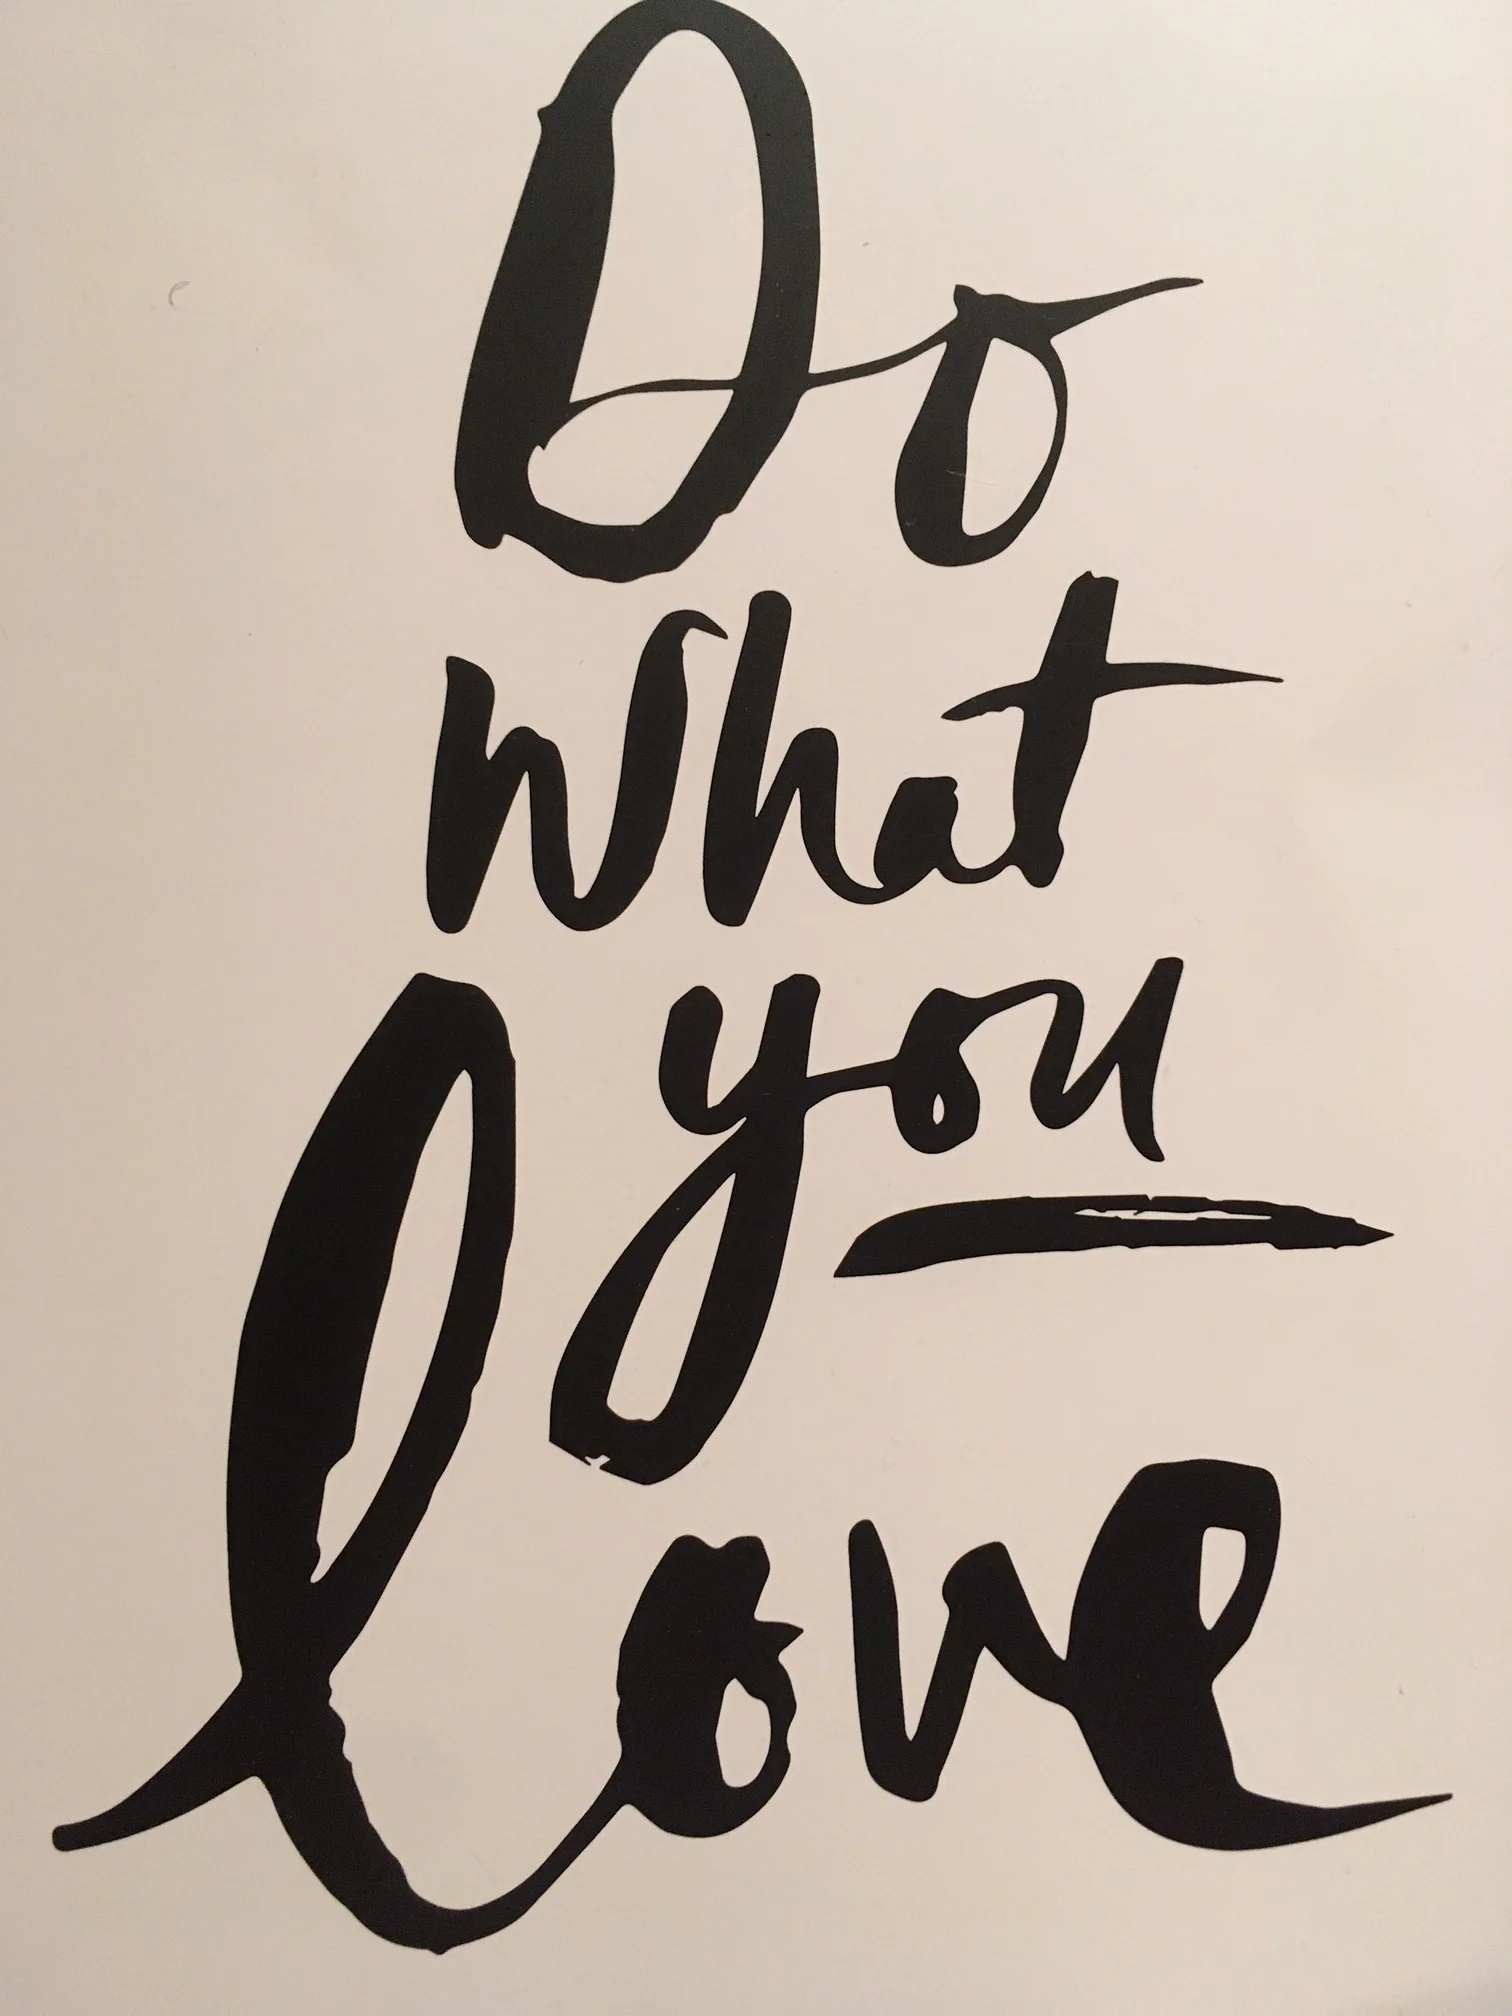 Do
what
you
love